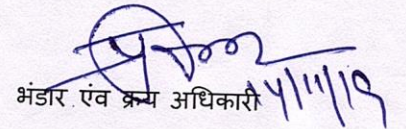 भंडार एंव क्रय अधिकारी 14/11/19